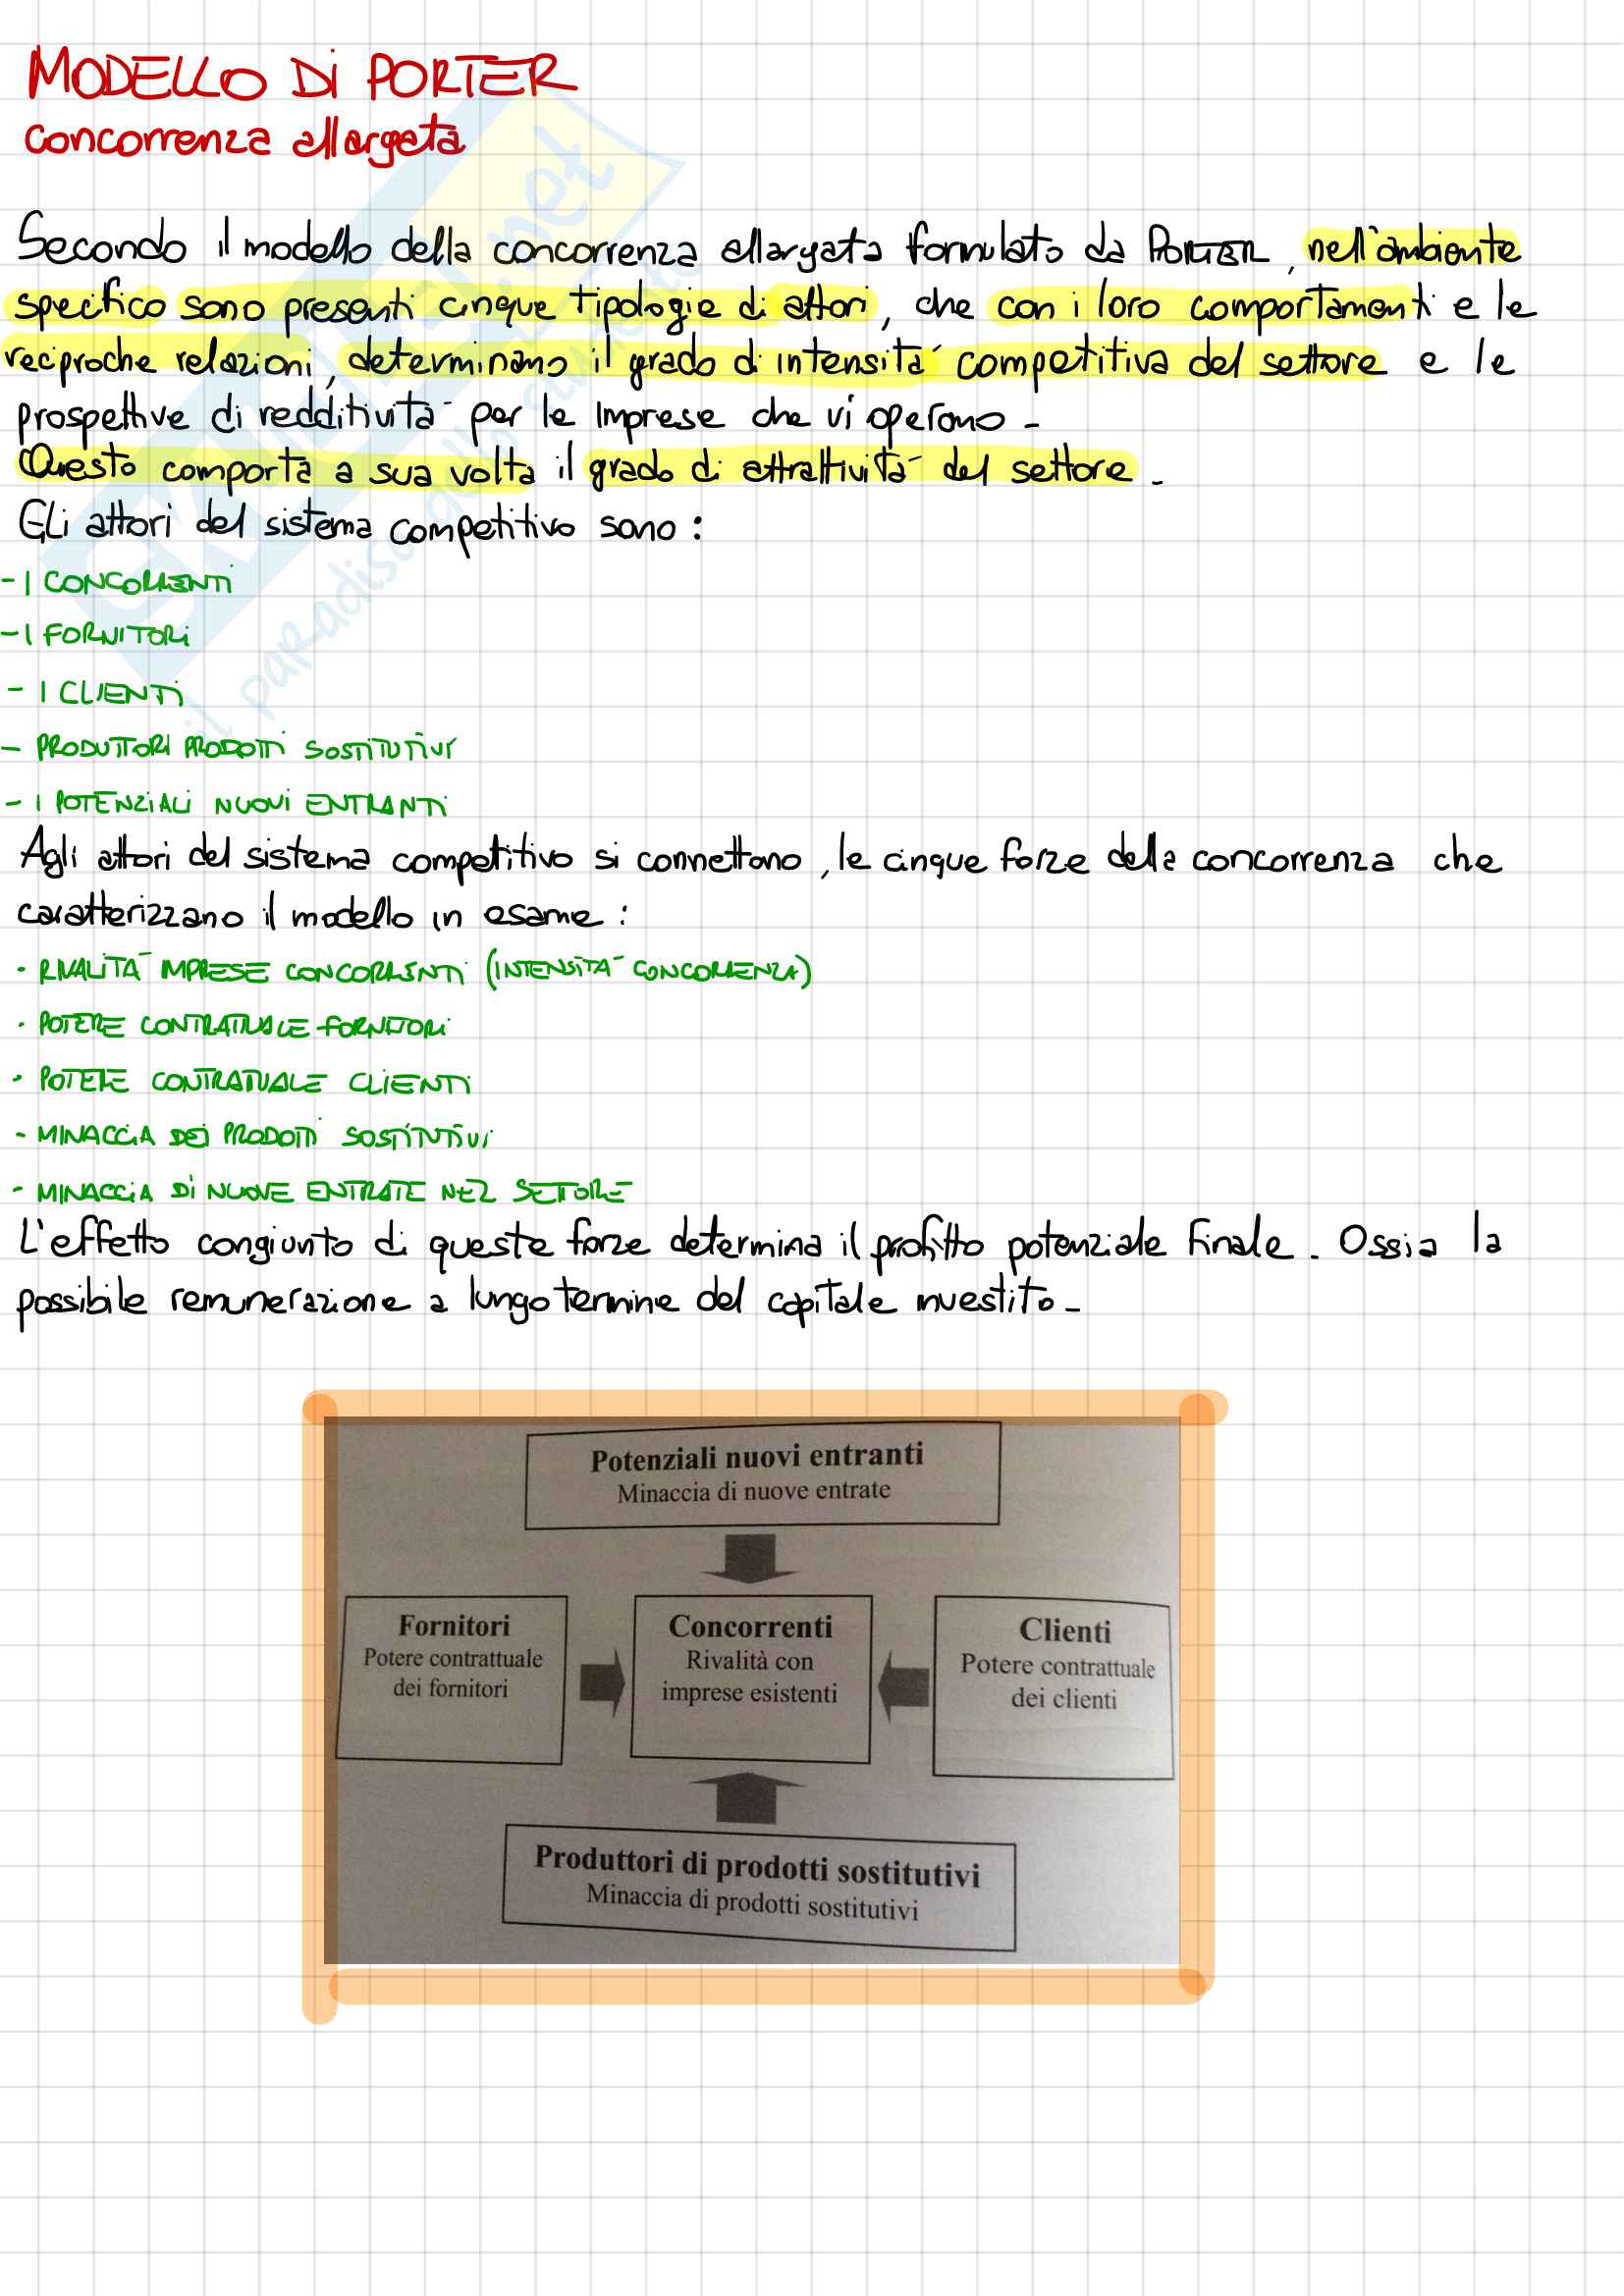 MODELLO DI PORTER
concorrenza allargata
Secondo il modello della concorrenza allargata formulato da PORTER, nell'ambiente
specifico sono presenti cinque tipologie di attori, che con i loro comportamenti e le
reciproche relazioni, determinano il grado di intensità competitiva del settore e le
prospettive di redditività per le imprese che vi operano -
Questo comporta a sua volta il grado di attrattività del settore -
Gli attori del sistema competitivo sono :
- I CONCORRENTI
- I FORNITORI
- I CLIENTI
- PRODUTTORI PRODOTTI SOSTITUTIVI
- I POTENZIALI NUOVI ENTRANTI
Agli attori del sistema competitivo si connettono, le cinque forze della concorrenza che
caratterizzano il modello in esame :
· RIVALITÀ IMPRESE CONCORRENTI (INTENSITÀ CONCORRENZA)
· POTERE CONTRATTUALE FORNITORI
· POTERE CONTRATTUALE CLIENTI
- MINACCIA DEI PRODOTTI SOSTITUTIVI
- MINACCIA DI NUOVE ENTRATE NEL SETTORE
L'effetto congiunto di queste forze determina il profitto potenziale finale - Ossia la
possibile remunerazione a lungo termine del capitale investito -
Potenziali nuovi entranti
Minaccia di nuove entrate
Fornitori
Potere contrattuale
dei fornitori
Concorrenti
Rivalità con
imprese esistenti
Clienti
Potere contrattuale
dei clienti
Produttori di prodotti sostitutivi
Minaccia di prodotti sostitutivi